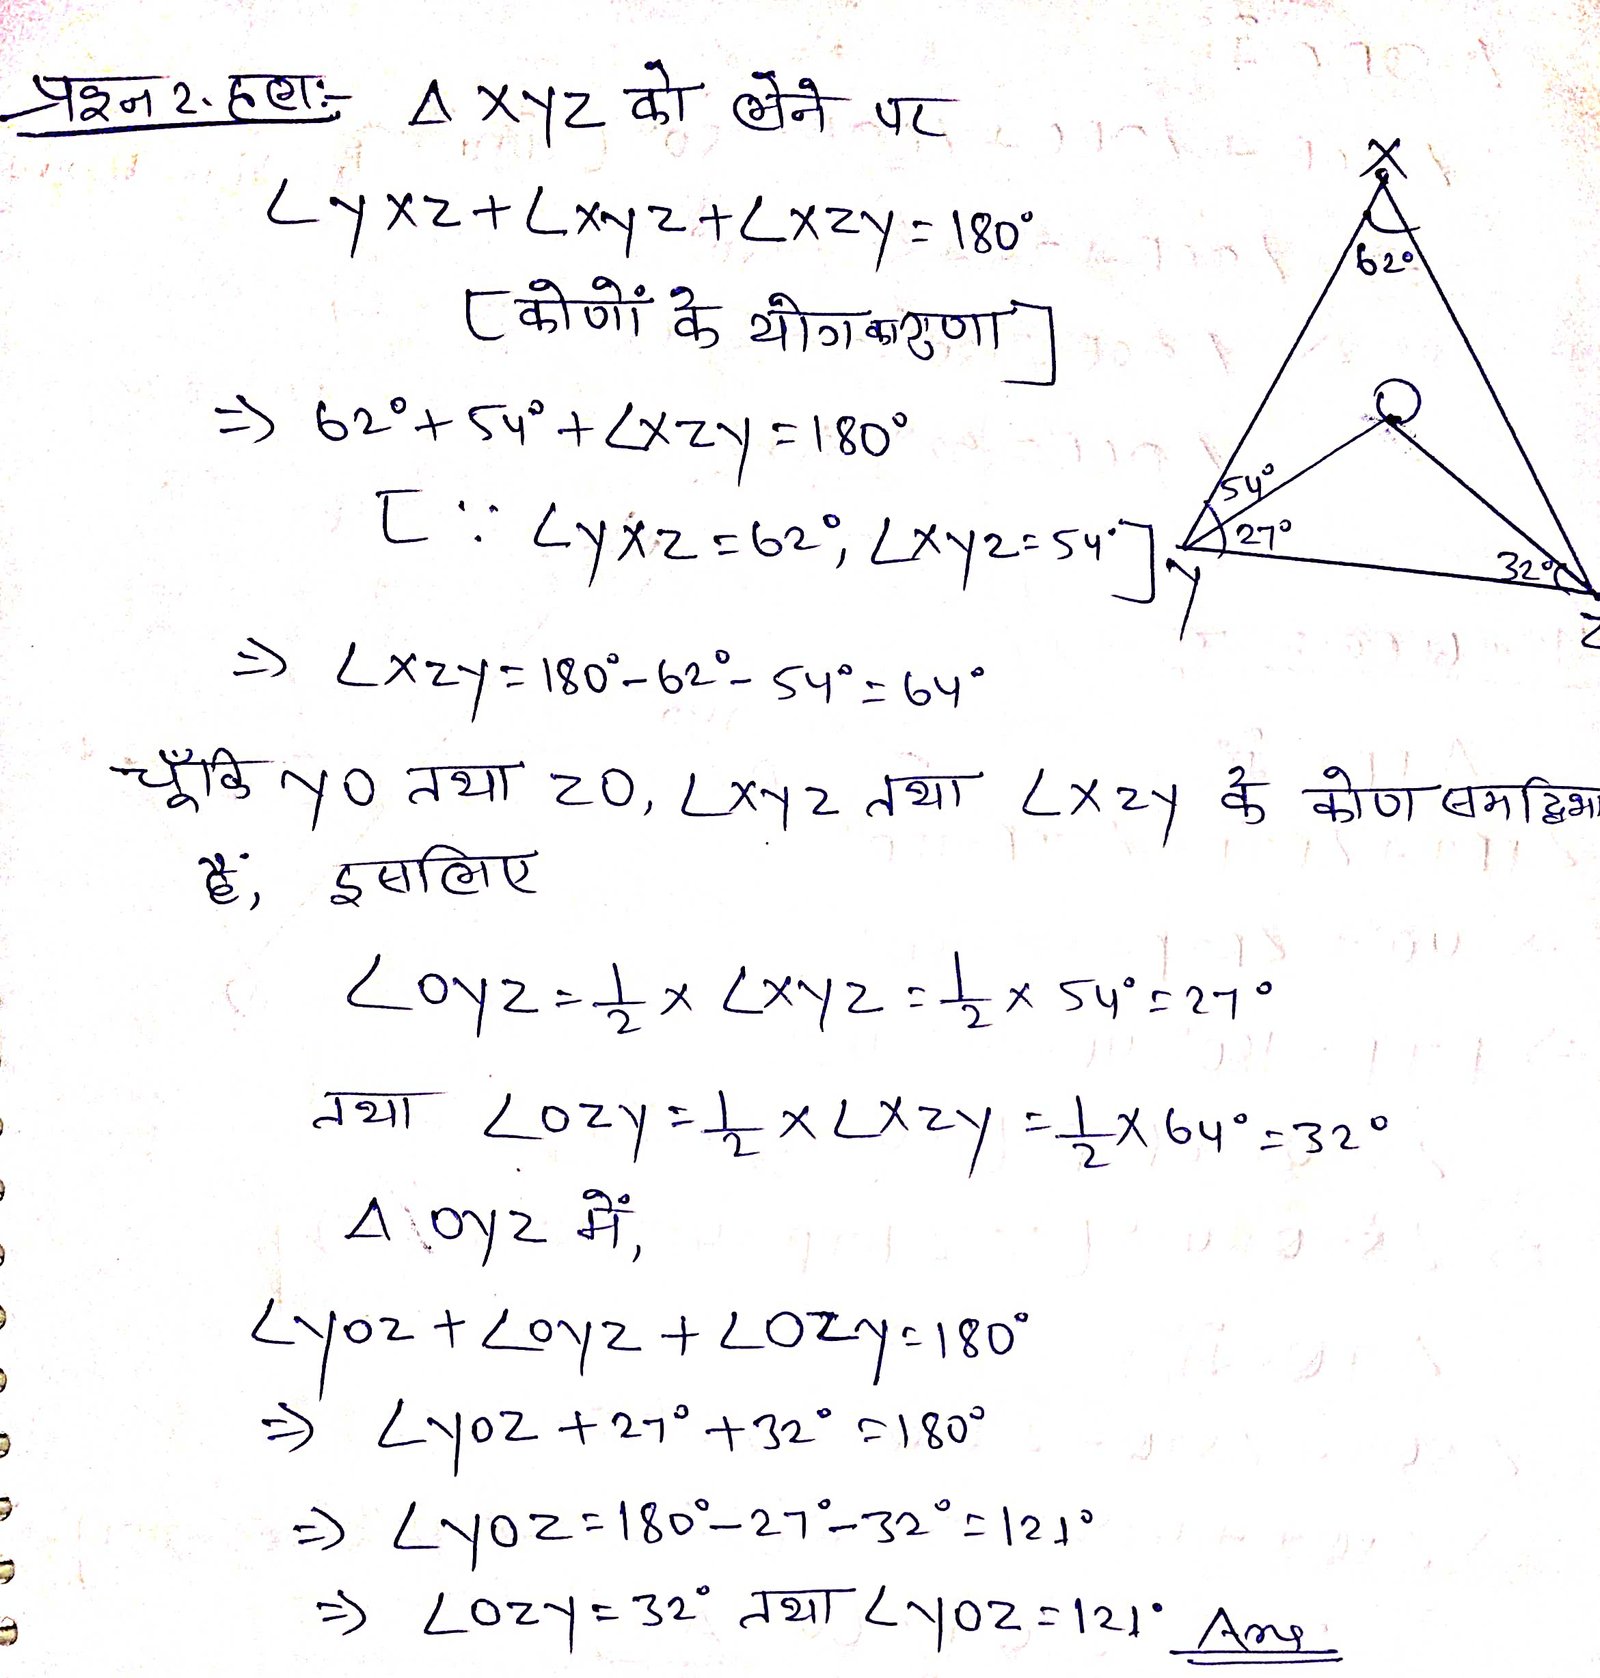 प्रश्न 2. हल:- Δ XYZ को लेने पर
∠YXZ+∠XYZ+∠XZY=180°
[कोणों के योग का गुणा]
⇒ 62°+54°+∠XZY=180°
[∵ ∠YXZ=62°, ∠XYZ=54°]
⇒ ∠XZY=180°-62°-54°=64°
चूँकि YO तथा ZO, ∠XYZ तथा ∠XZY के कोण समद्विभा
हैं, इसलिए
∠OYZ=1/2×∠XYZ=1/2×54°=27°
तथा ∠OZY=1/2×∠XZY=1/2×64°=32°
Δ OYZ में,
∠YOZ+∠OYZ+∠OZY=180°
⇒ ∠YOZ+27°+32°=180°
⇒ ∠YOZ=180°-27°-32°=121°
⇒ ∠OZY=32° तथा ∠YOZ=121° Ans
X
62°
O
54°
27°
32°
Y
Z